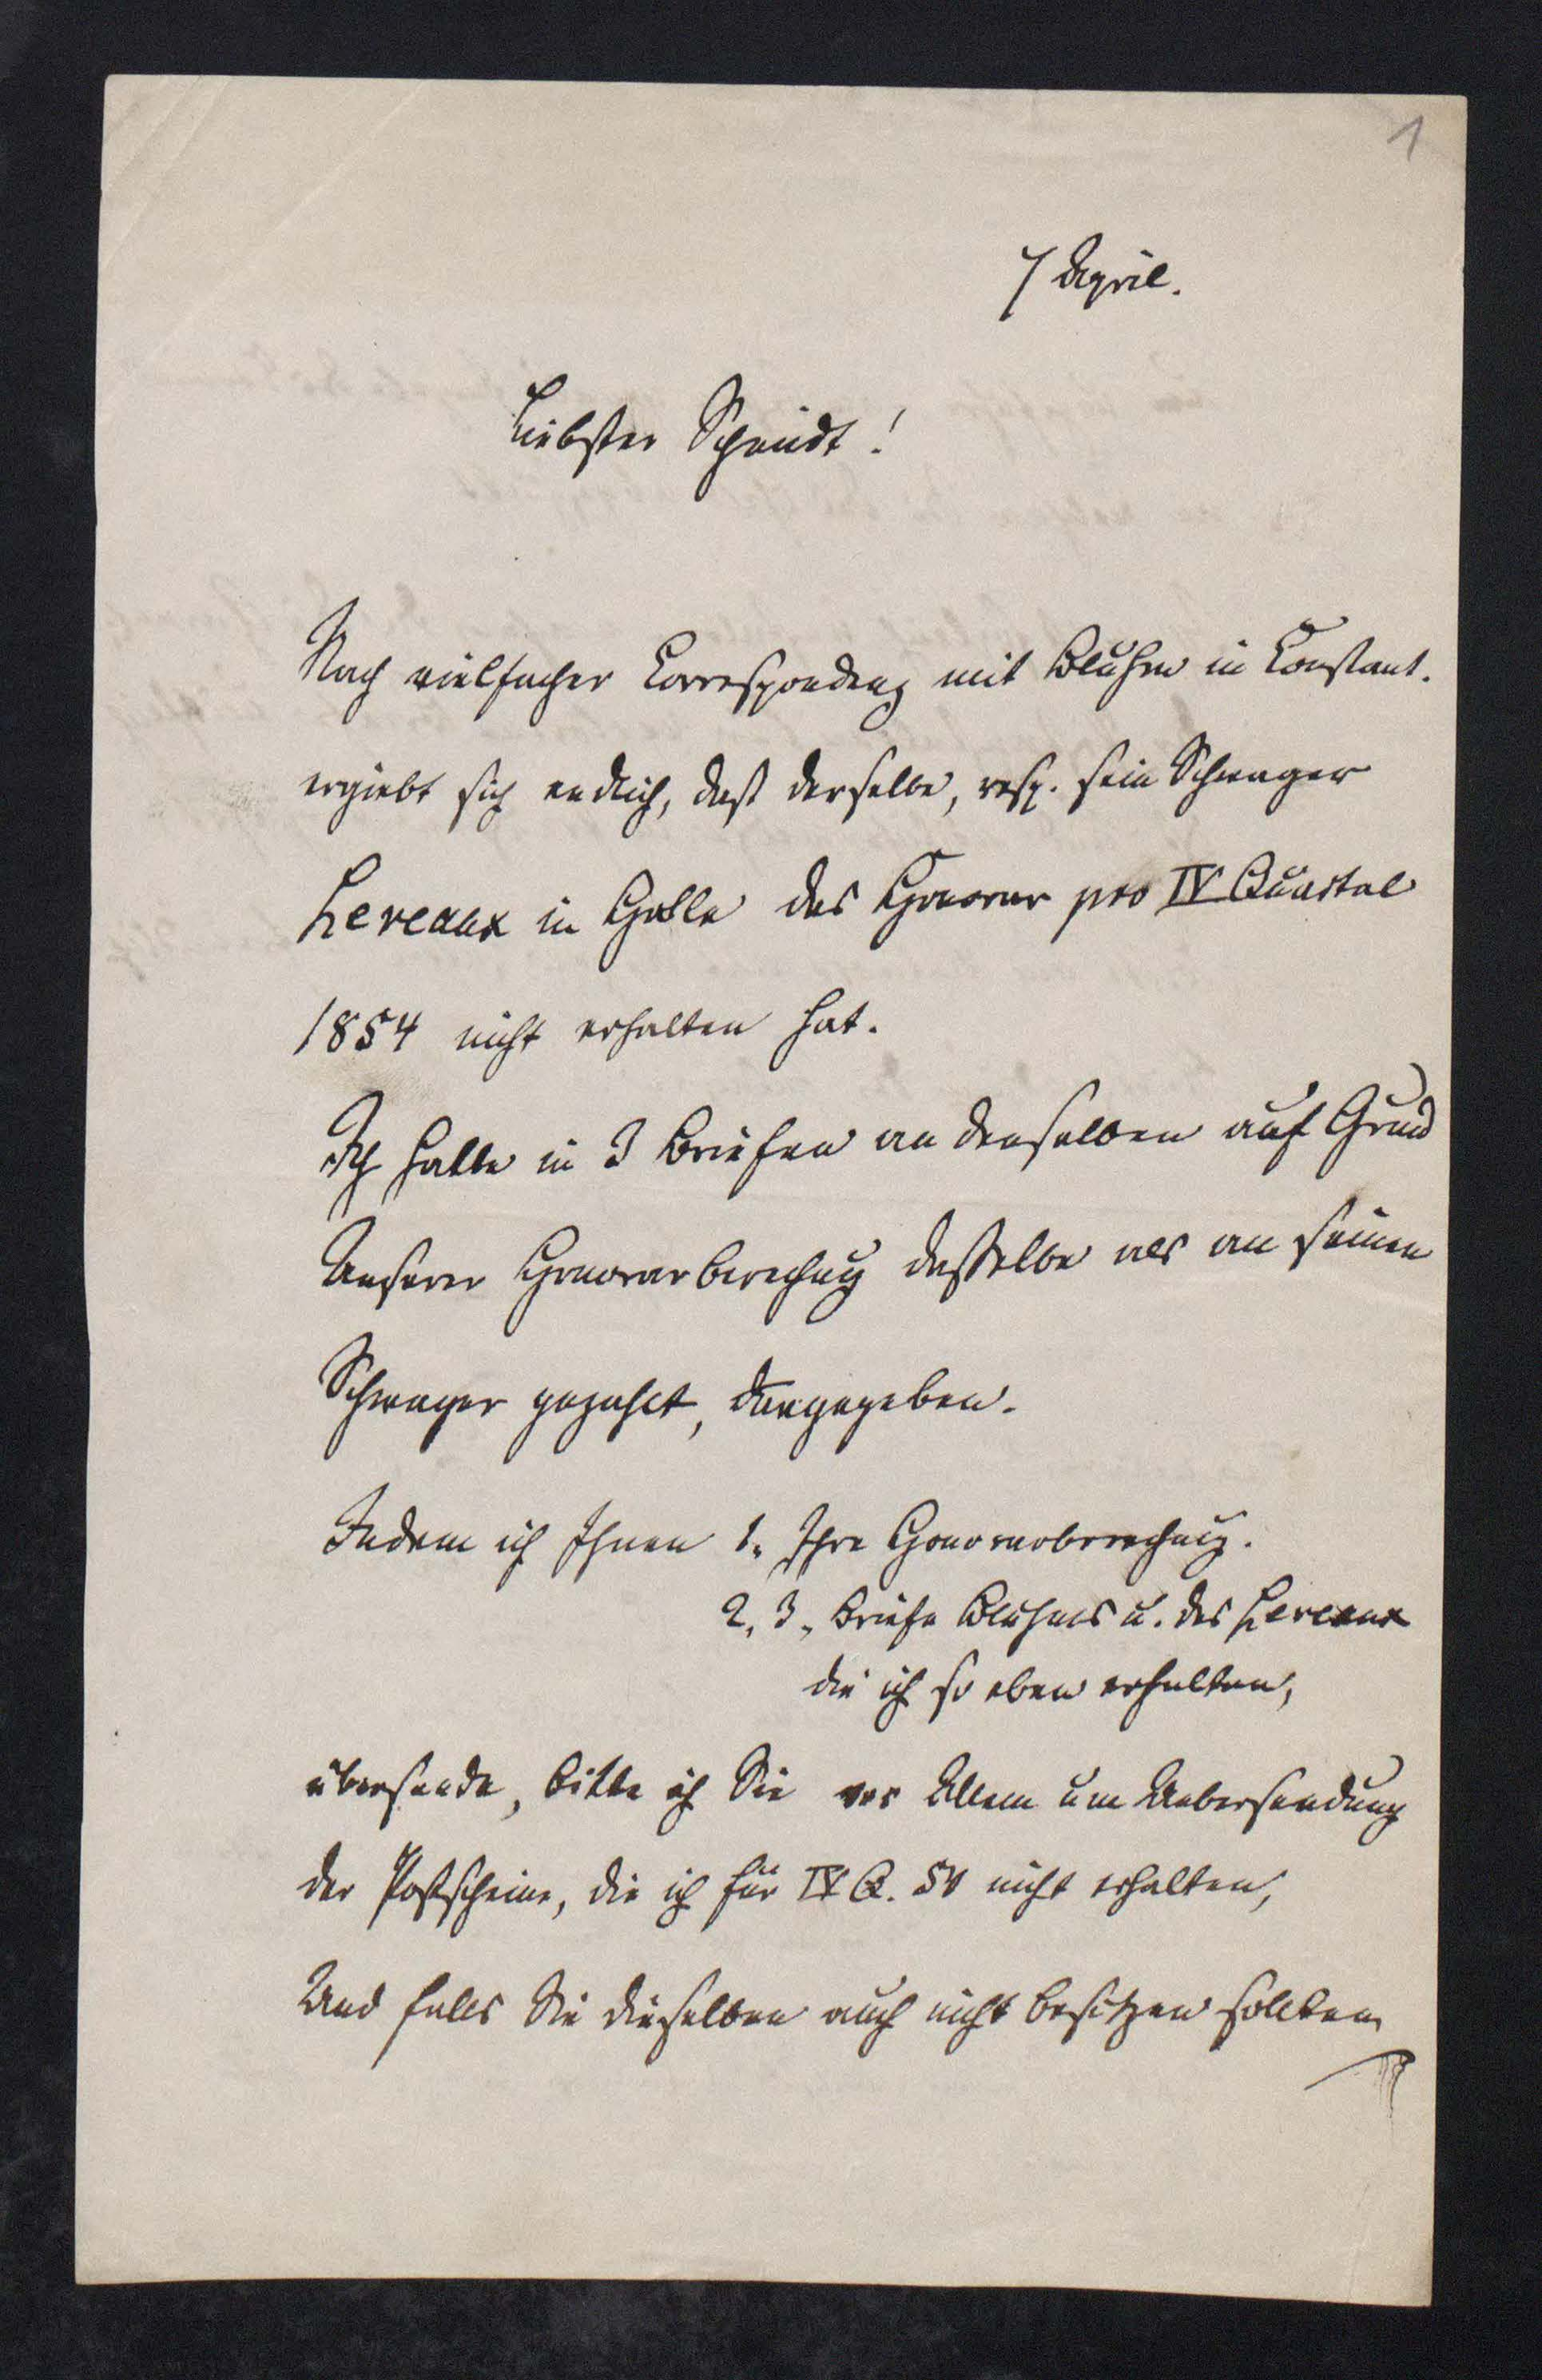 1
7 April.
Liebster Schmidt!
Nach vielfacher Correspondenz mit Bluhm in Constant.
ergiebt sich endlich, daß derselbe, resp. sein Schwager
Hereaux in Halle das Honorar pro IV Quartal
1854 nicht erhalten hat.
Ich hatte in 3 Briefen an denselben auf Grund
Unserer Honorarberechng dasselbe als an seinen
Schwager gezahlt, angegeben.
Indem ich Ihnen 1. Ihre Honorarberechng.
2, 3, Briefe Bluhms u. des Hereaux
die ich so eben erhalten,
übersende, bitte ich Sie vor Allem um Uebersendung
der Postscheine, die ich für IV Q. 54 nicht erhalten,
Und falls Sie dieselben auch nicht besitzen sollten